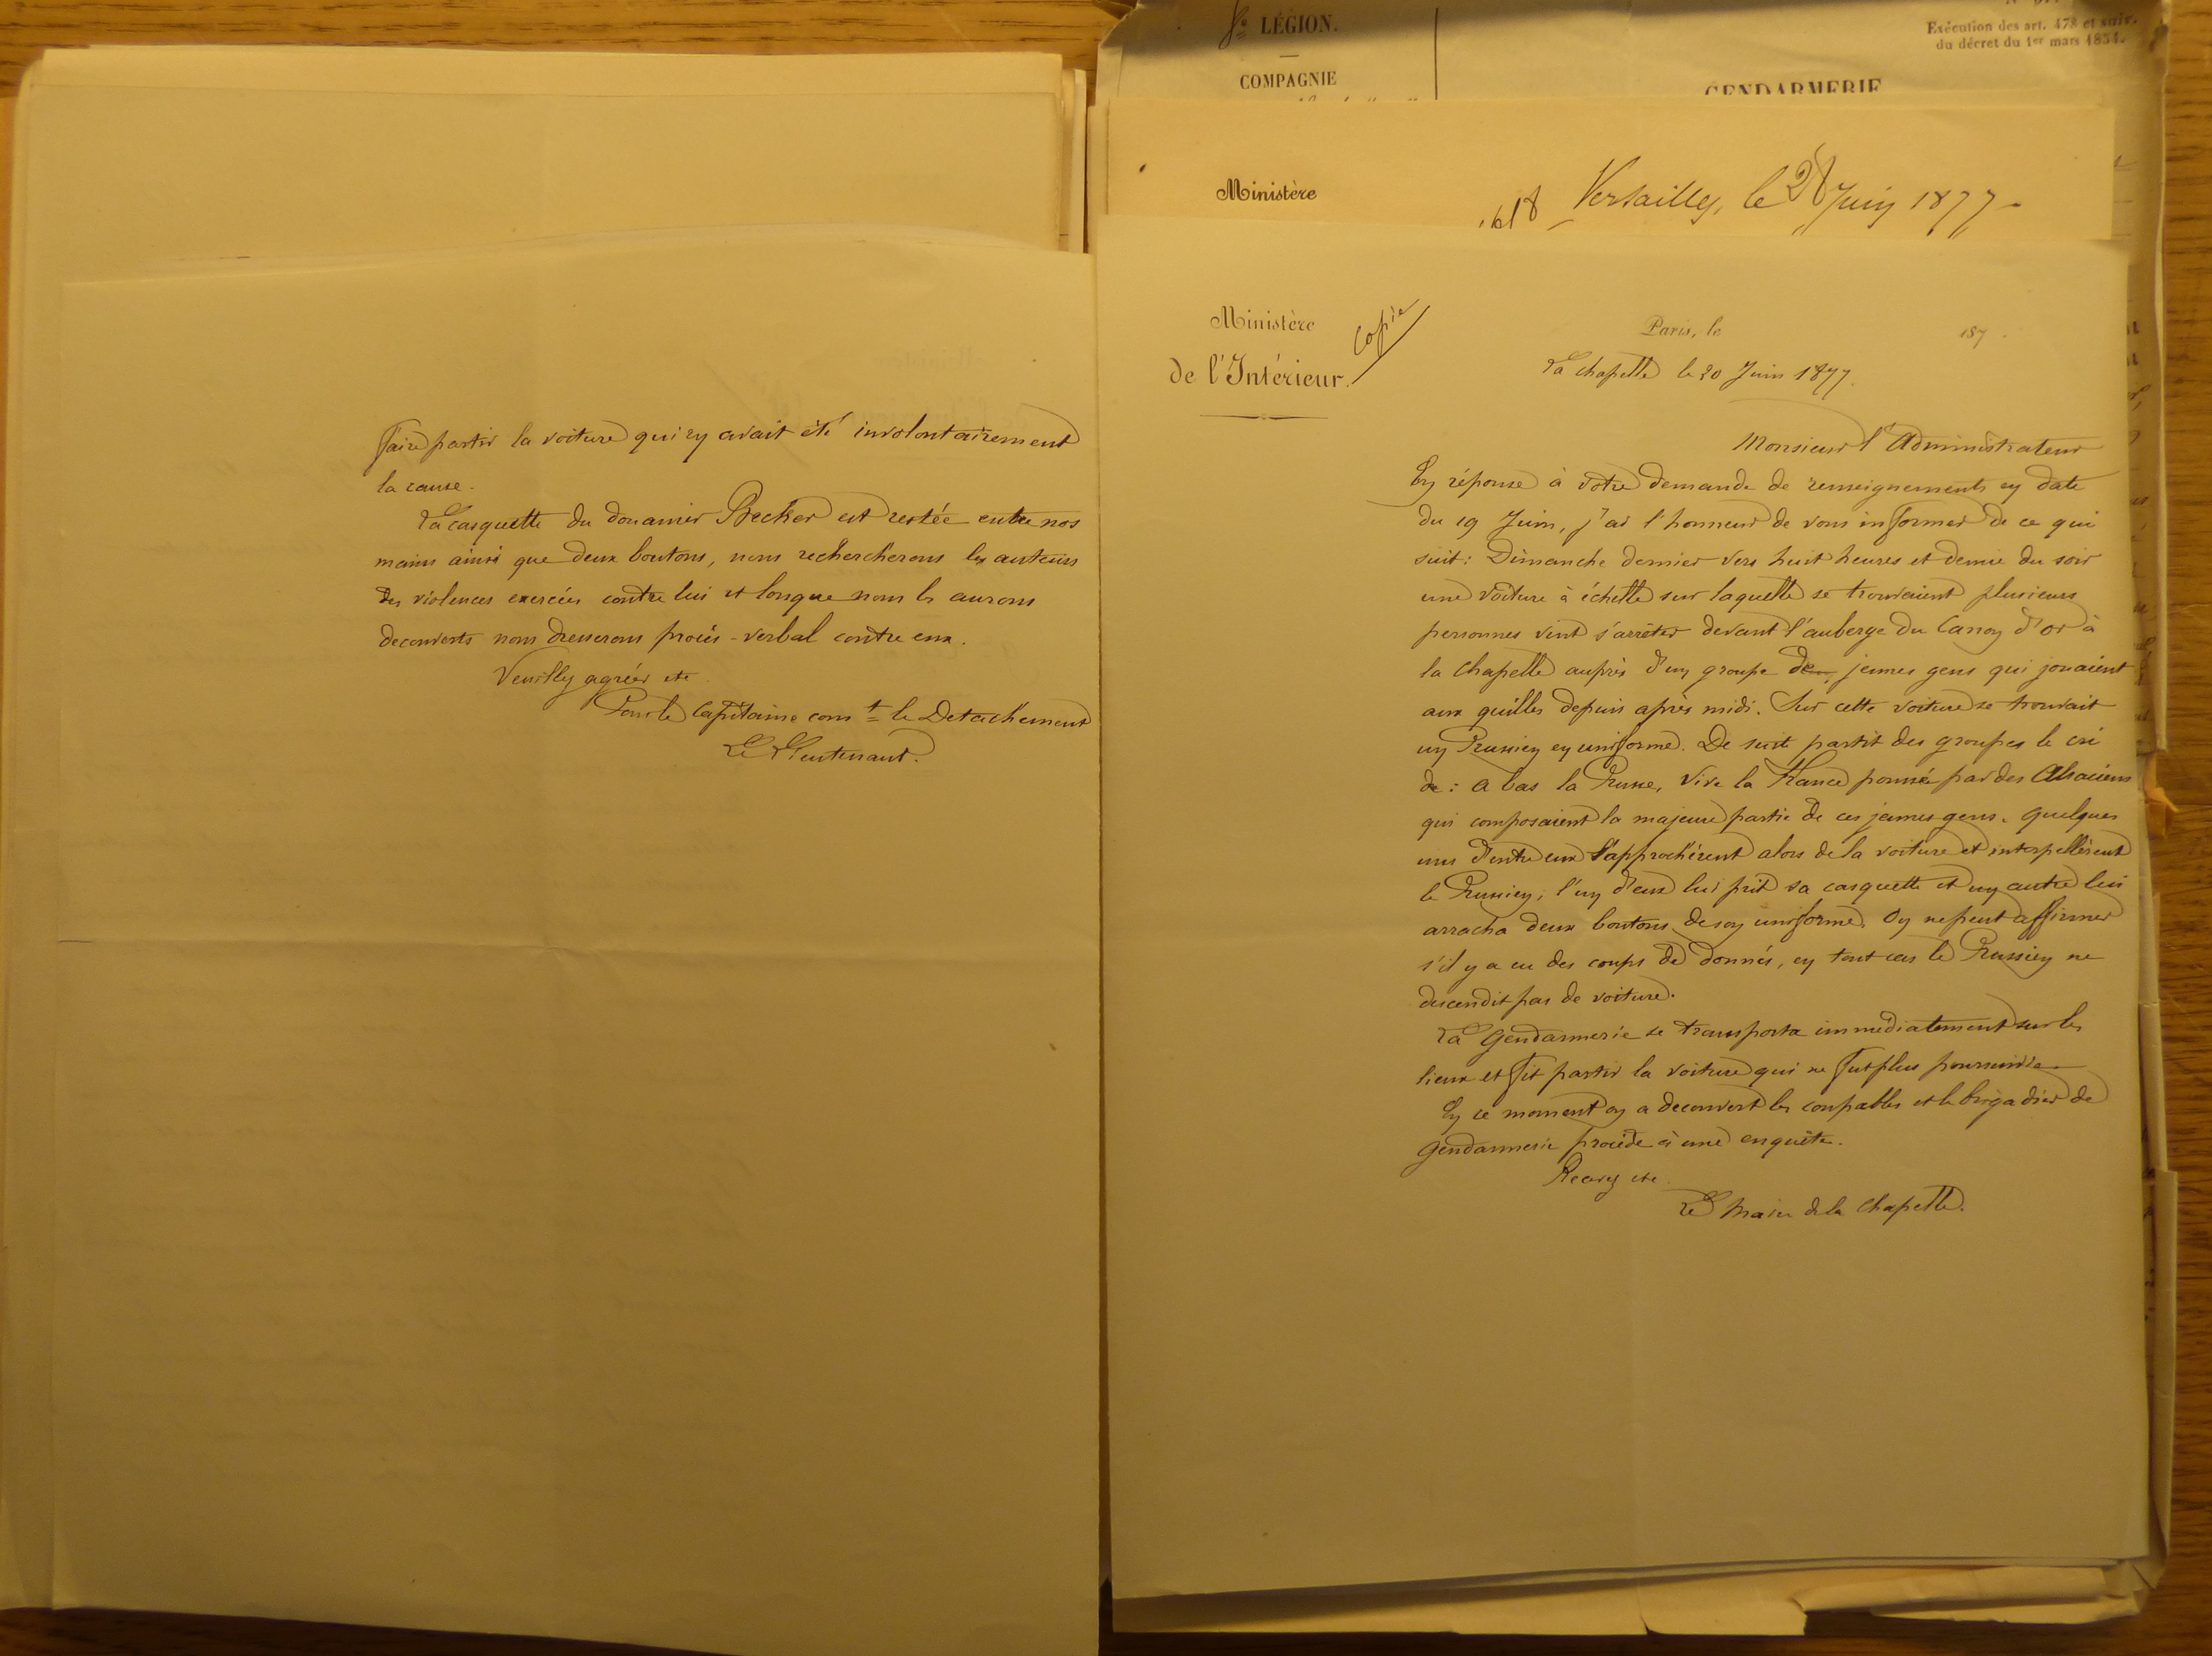 faire partir la voiture qui en avait été involontairement
la cause.
La casquette du douanier Becker est restée entre nos
mains ainsi que deux boutons, nous rechercherons les auteurs
des violences exercées contre lui et lorsque nous les aurons
decouverts nous dresserons procès-verbal contre eux.
Veuillez agréer etc
Pour le Capitaine comt le Detachement
Le Lieutenant.
LÉGION.
COMPAGNIE
Exécution des art. 478 et suiv.
du décret du 1er mars 1854.
GENDARMERIE
Ministère
Versailles, le 28 Juin 1877
Ministère
de l'Intérieur.
Copie
Paris, le 187 .
La Chapelle le 20 Juin 1877.
Monsieur l'Administrateur
En réponse à votre demande de renseignements en date
du 19 Juin, j'ai l'honneur de vous informer de ce qui
suit: Dimanche dernier vers huit heures et demie du soir
une voiture à échelle sur laquelle se trouvaient plusieurs
personnes vint s'arrêter devant l'auberge du Canon d'or à
la Chapelle auprès d'un groupe de jeunes gens qui jouaient
aux quilles depuis après midi. Sur cette voiture se trouvait
un Prussien en uniforme. De suite partit des groupes le cri
de: a bas la Prusse, Vive la France poussé par des Alsaciens
qui composaient la majeure partie de ces jeunes gens. quelques
uns d'entre eux s'approchèrent alors de la voiture et interpellèrent
le Prussien, l'un d'eux lui prit sa casquette et un autre lui
arracha deux boutons de son uniforme. On ne peut affirmer
s'il y a eu des coups de donnés, en tout cas le Prussien ne
descendit pas de voiture.
La Gendarmerie se transporta immédiatement sur les
lieux et fit partir la voiture qui ne fut plus poursuivie.
En ce moment on a decouvert les coupables et le brigadier de
gendarmerie procède à une enquête.
Recevez etc.
Le Maire de la Chapelle.